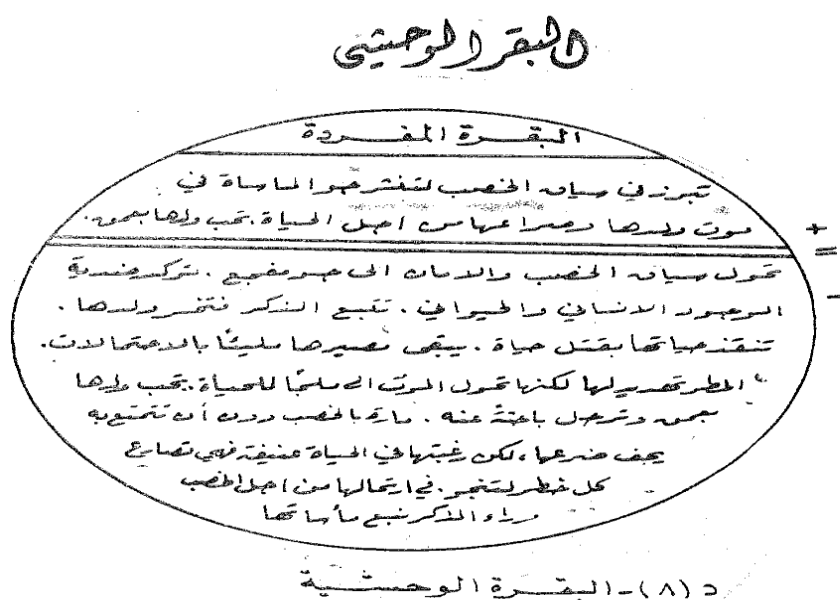 البقر الوحشي
البقرة المفردة
تبرز في سياق الخصب لتنشر جو الماساة في
موت ولدها وصراعها من اجل الحياة. تحب ولدها بعمق.
+
=
-
تحول سياق الخصب والامان الى جو مفجع. تركد ضدية
الوجود الانساني والحيواني. تتبع الذكر فتخسر ولدها.
تنقذ حياتها بقتل حياة. يبقى مصيرها مليئًا بالاحتمالات.
المطر تهديد لها لكنها تحول الموت الى ملجأ للحياة. تحب ولدها
بعمق وترحل باحثةً عنه. مارة بالخصب دون أن تتمتع به
يجف ضرعها، لكن رغبتها في الحياة عنيفة فهي تصارع
كل خطر لتنجو. في ارتحالها من اجل الخصب
وراء الذكر نبع مأساتها
د (٨) - البقرة الوحشية